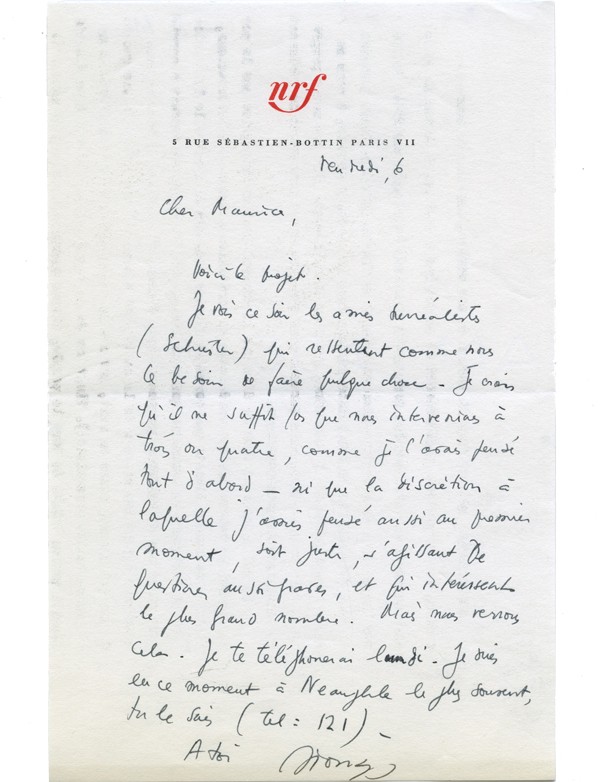 nrf
5 RUE SÉBASTIEN-BOTTIN PARIS VII
Vendredi, 6
Cher Maurice,
Voici le projet.
Je vois ce soir les amis surréalistes
(Schuster) qui ressentent comme nous
le besoin de faire quelque chose – Je crois
qu'il ne suffit pas que nous intervenions à
trois ou quatre, comme je l'avais pensé
tout d'abord – ni que la discrétion à
laquelle j'avais pensé aussi au premier
moment, soit juste, s'agissant de
questions aussi graves, et qui intéressent
le plus grand nombre. Mais nous verrons
cela. Je te téléphonerai lundi. Je suis
en ce moment à Neauphle le plus souvent,
tu le sais (tel : 121) –
A toi